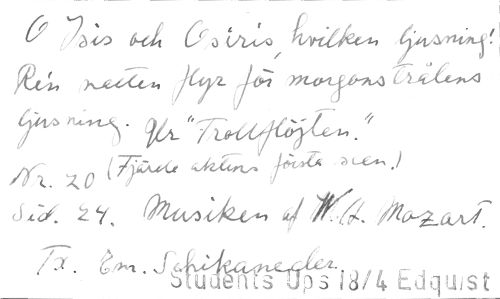 O Isis och Osiris, hvilken ljusning!
Re'n natten flyr för morgonstrålens
ljusning. Ur "Trollflöjten."
Nr. 20 (Fjärde aktens första scen.)
Sid. 24. Musiken af W. A. Mozart.
Tx. Em. Schikaneder.
Students Ups 18/4 Edquist